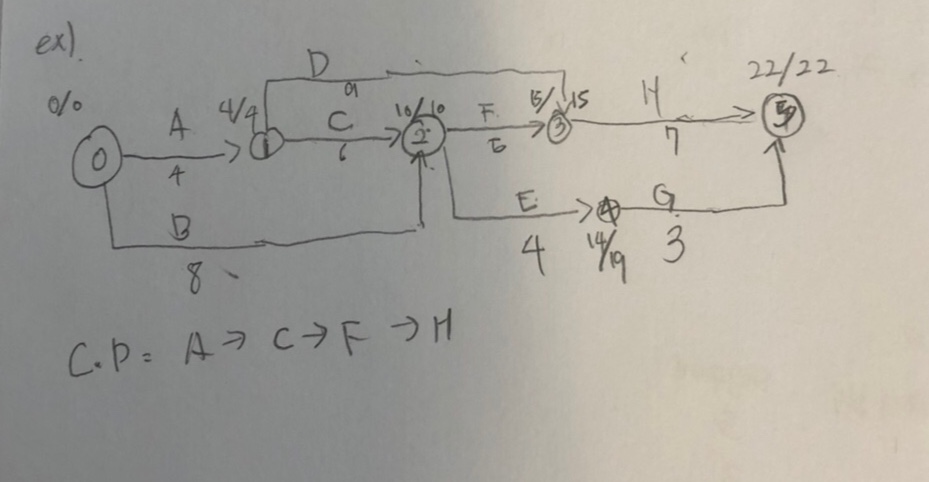 ex).
D
9
0/0
A
4
4/4
1
C
6
10/10
2
F
5
15/15
3
H
7
22/22
5
0
B
8
E
4
4
14/19
G
3
C.P= A → C → F → H